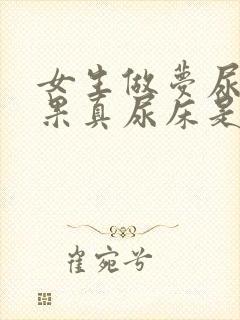 女生做梦尿
果真尿床是
崔宛兮